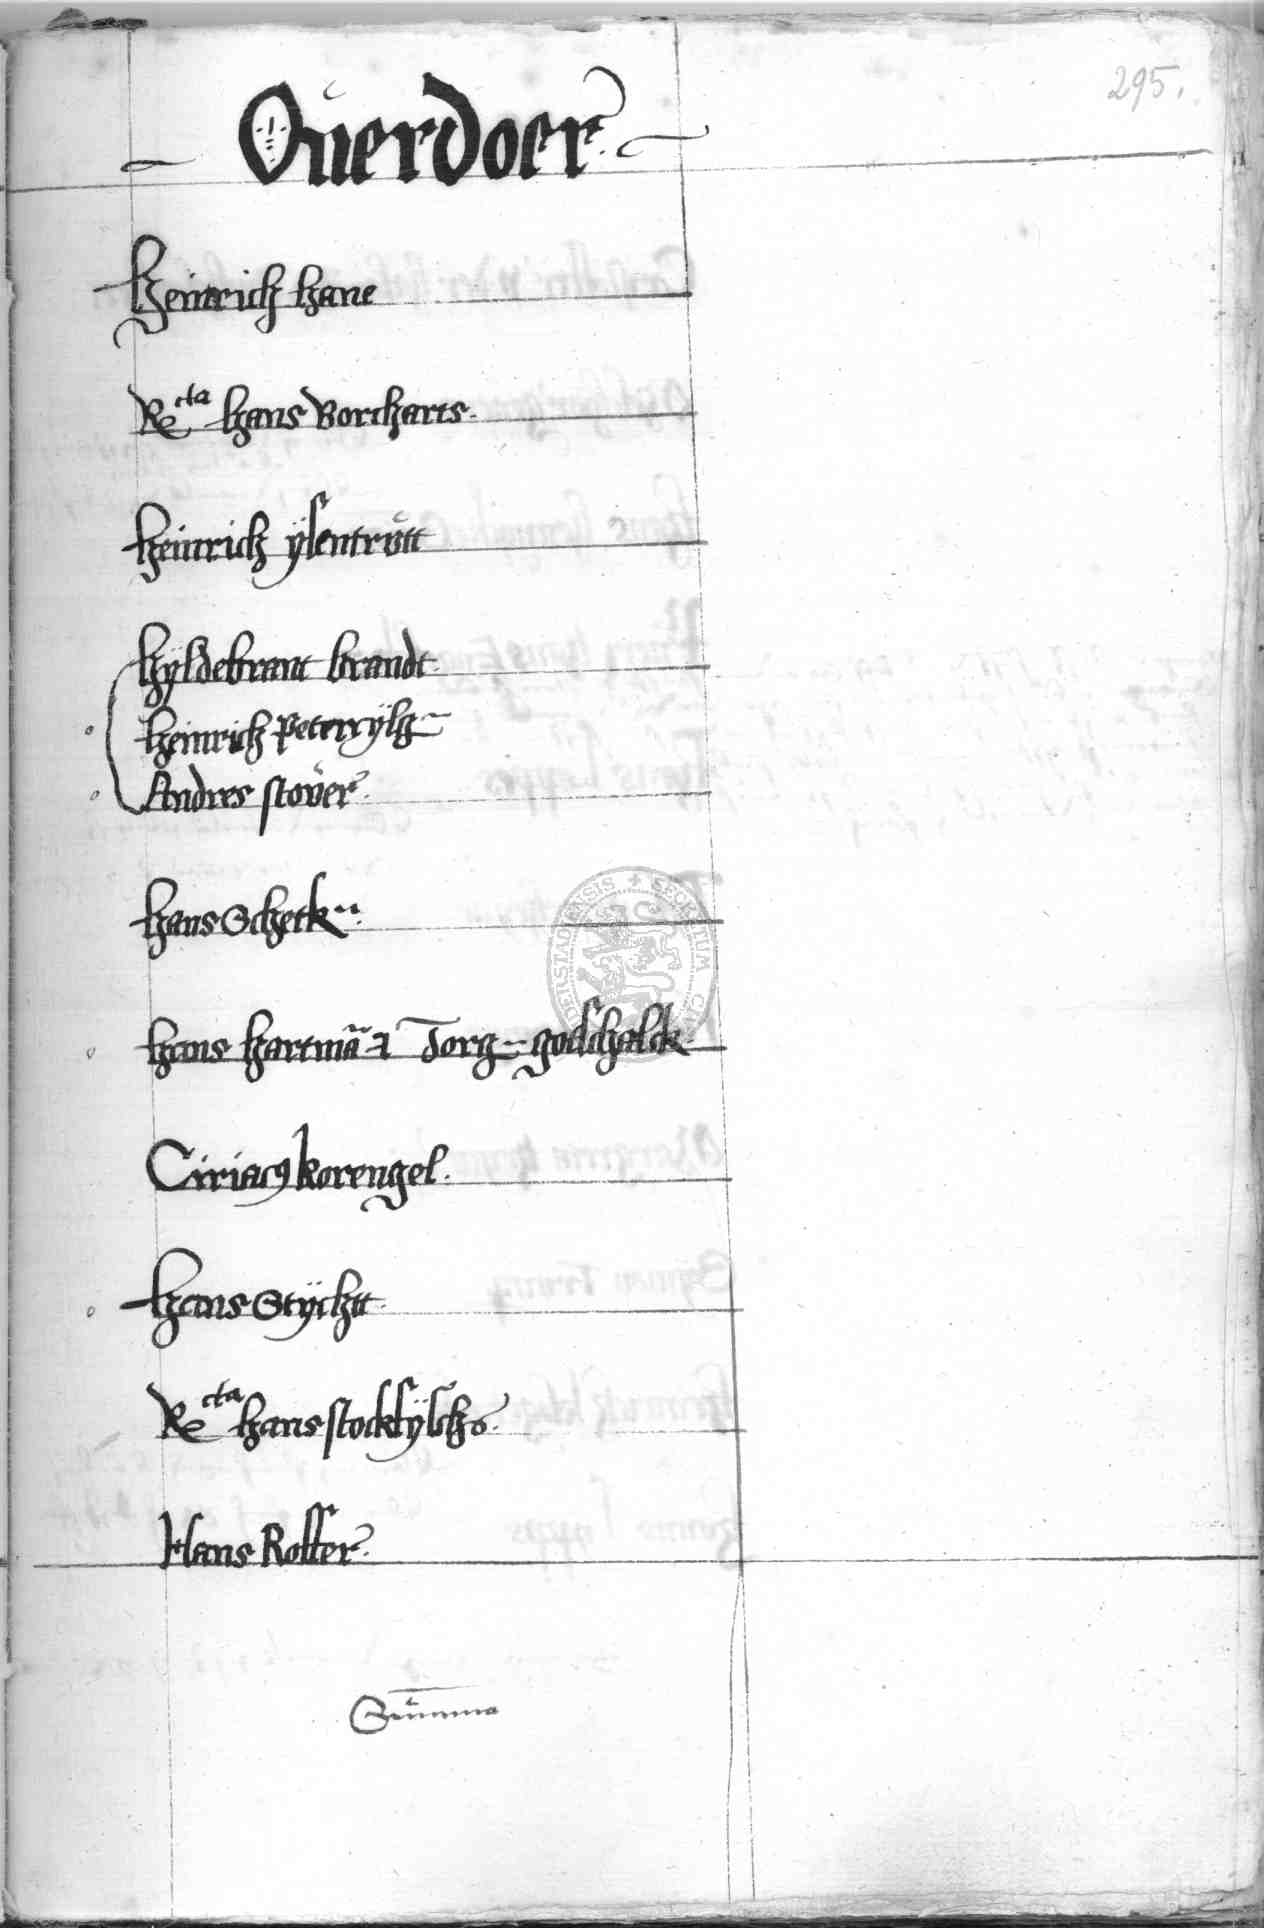 295.
Ouerdoer
Heinrich Hane
Recta Hans Borcharts
Heinrich ÿsentrůtt
Hÿldebrant brandt
Heinrich Peterrÿlg
Andres stouer
Hans Schetk
Hans Hartmā Jorg godschalck
Ciriacꝯ korengel
Hans Stÿchtt
Recta Hans stockfÿsch
Hans Rosser
Summa
DERSTADIENSIS + SECRETUM CI